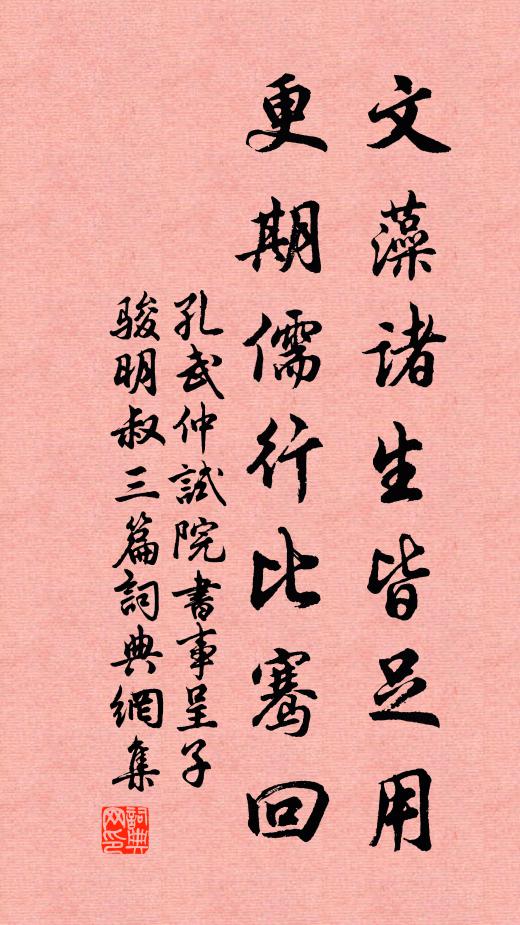 文藻諸生皆足用
更期儒行比骞回
孔武仲試院書事呈子
骏明叔三篇詞典網集
詞典网印